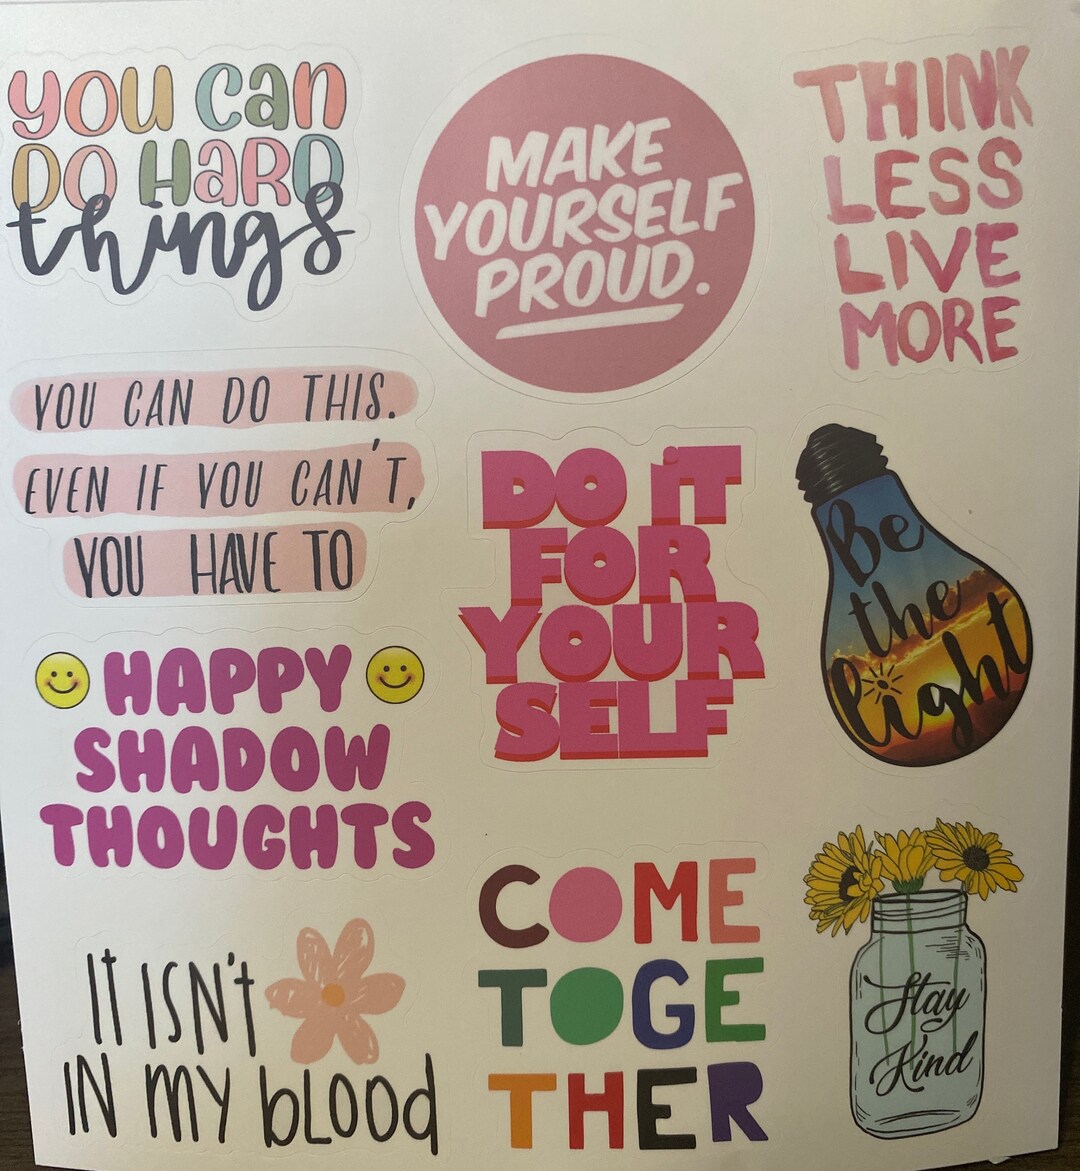 YOU CAN
DO HARD
things
MAKE
YOURSELF
PROUD.
THINK
LESS
LIVE
MORE
YOU CAN DO THIS.
EVEN IF YOU CAN'T,
YOU HAVE TO
DO iT
FOR
YOUR
SELF
Be
the
light
HAPPY
SHADOW
THOUGHTS
COME
TOGE
THER
Stay
Kind
IT ISN't
IN my blood